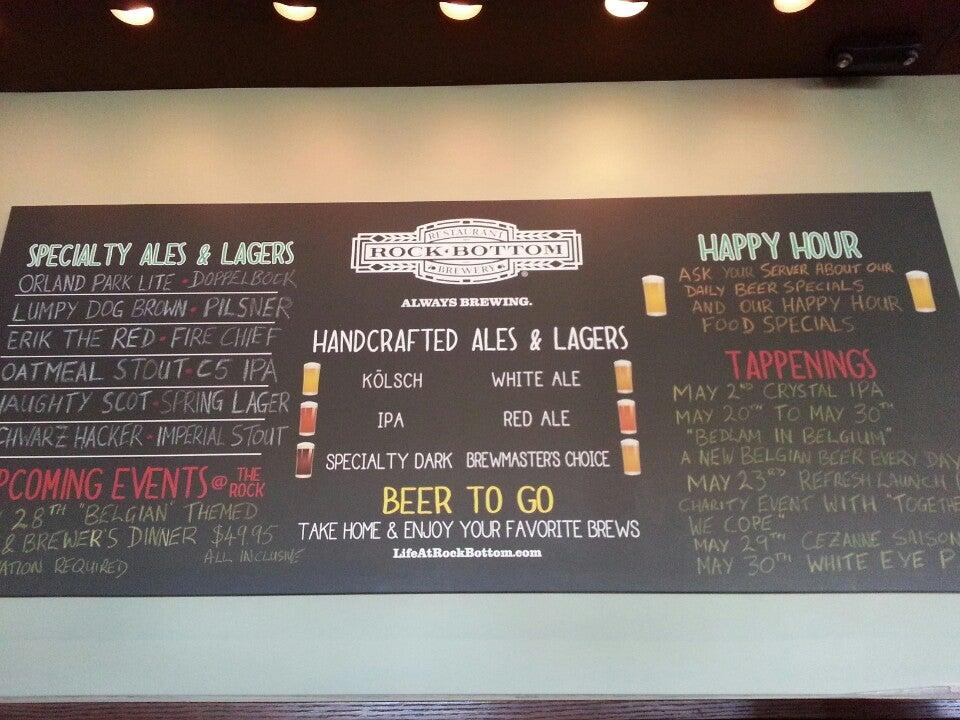 SPECIALTY ALES & LAGERS
ORLAND PARK LITE • DOPPELBOCK
LUMPY DOG BROWN • PILSNER
ERIK THE RED • FIRE CHIEF
OATMEAL STOUT • C5 IPA
NAUGHTY SCOT • SPRING LAGER
SCHWARZ HACKER • IMPERIAL STOUT
UPCOMING EVENTS @ THE ROCK
28TH "BELGIAN" THEMED
& BREWER'S DINNER $49.95
ALL INCLUSIVE
REQUIRED
RESTAURANT
ROCK • BOTTOM
BREWERY
ALWAYS BREWING.
HANDCRAFTED ALES & LAGERS
KÖLSCH WHITE ALE
IPA RED ALE
SPECIALTY DARK BREWMASTER'S CHOICE
BEER TO GO
TAKE HOME & ENJOY YOUR FAVORITE BREWS
LifeAtRockBottom.com
HAPPY HOUR
ASK YOUR SERVER ABOUT OUR
DAILY BEER SPECIALS
AND OUR HAPPY HOUR
FOOD SPECIALS
TAPPENINGS
MAY 2ND CRYSTAL IPA
MAY 20TH TO MAY 30TH
"BEDLAM IN BELGIUM"
A NEW BELGIAN BEER EVERY DAY
MAY 23RD REFRESH LAUNCH
CHARITY EVENT WITH "TOGETHER
WE COPE"
MAY 29TH CEZANNE SAISON
MAY 30TH WHITE EYE P